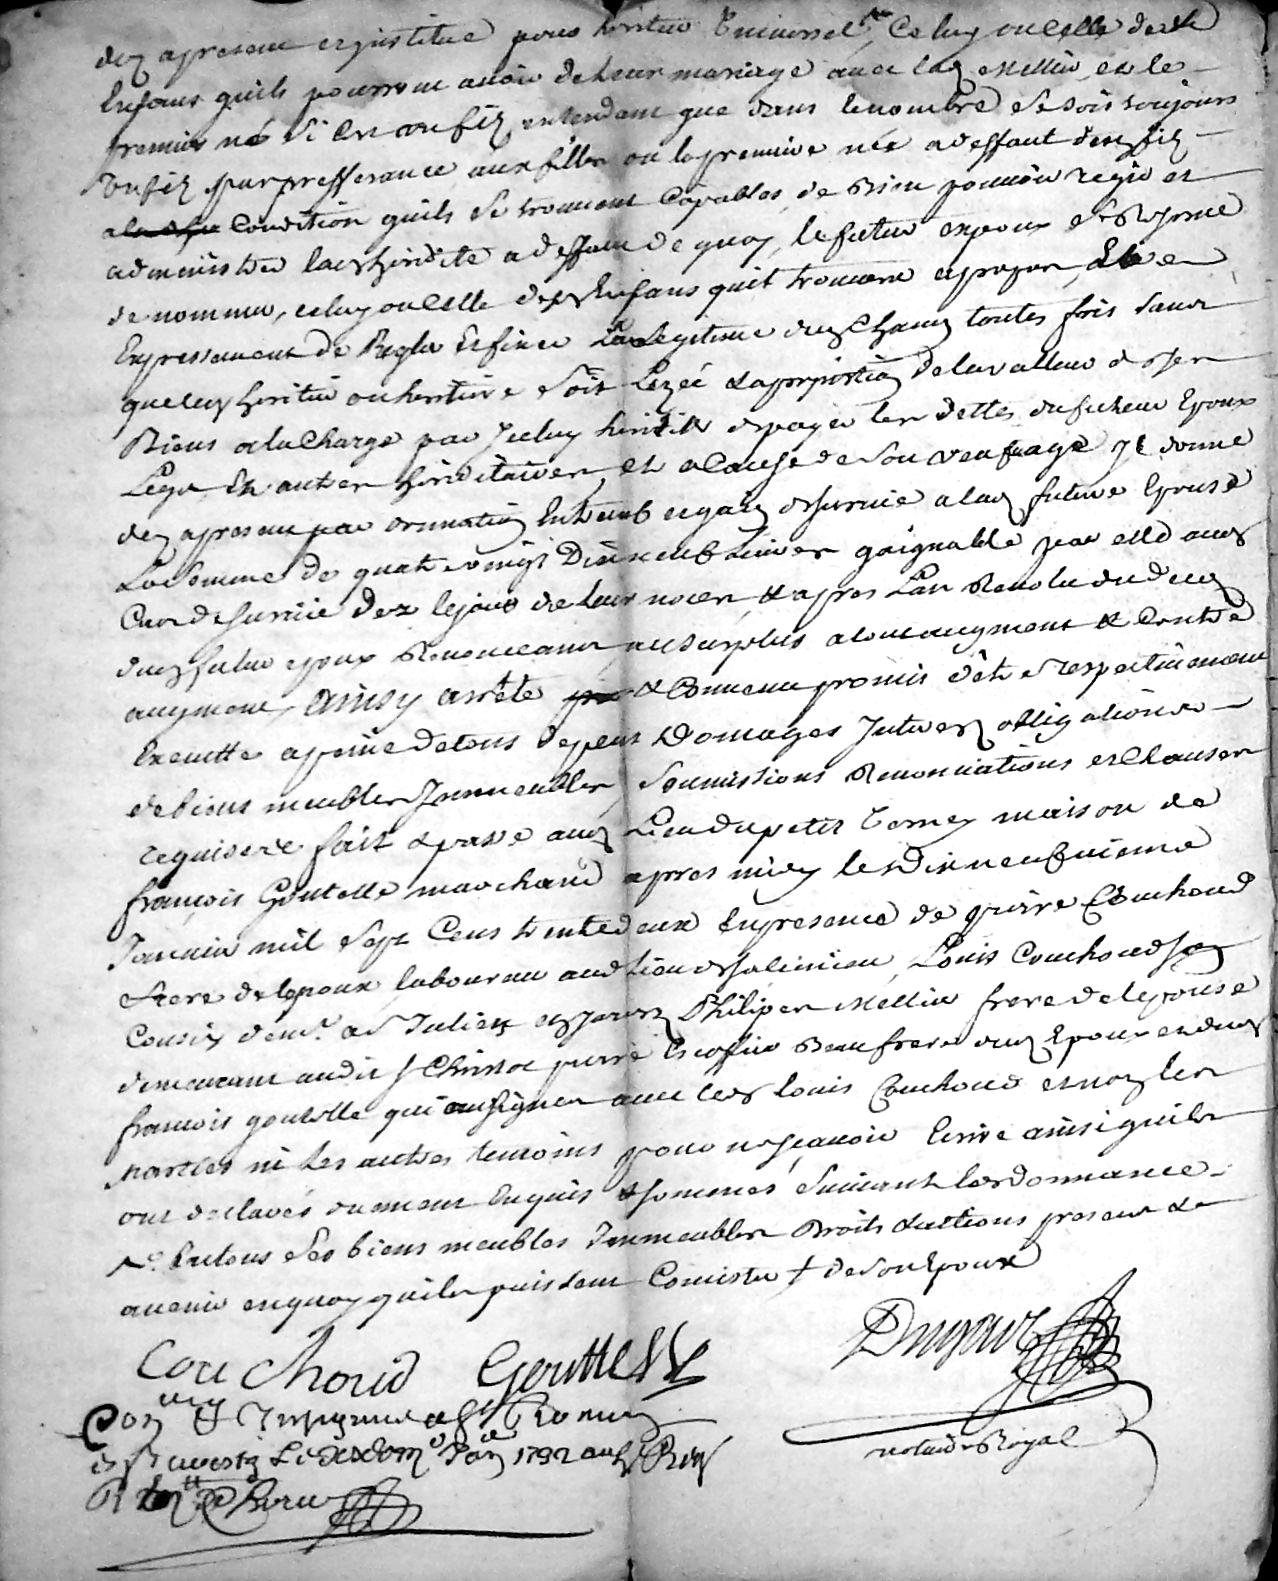 dez apresent et institue pour heritier Universel, Celuy ou Celle de
Enfans quils pourront avoir de leur mariage avec lad Mellin, et le
premier né si C'est un filz entendant que dans le nombre Se soit toujours
un filz par prefferance aux filles ou la premiere née a deffaut des filz
Condition quils Se trouvent Capables, de Bien pouvoir regir et
administrer lad heridité a deffaut de quoy, le futur expoux Se Reserve
de nommer, celuy ou Celle desd Enfans quil trouvera apropos, et
Expressement de Regler et fixer La Legitime dun Chacun toutes fois sans
que led heritier ou heritiere Soit Lezée & a proportion de la valleur de ses
Biens a la Charge par Iceluy heritier de payer les dettes du futeur Epoux
Legs et autres hereditaires, et a Cause de Son veufvage Il donne
dez apresent par donnation Entre vifs et gain de survie a lad future Epouse
La Somme de quatre vingt Dix neuf Livres gaignable par elle aud
Cas de survie dez le jour de leur noces & apres L'an Revolu du deces
dud futur epoux Renonceant au surplus a tout augment & Contre
augment, Ainsy arrêté & Convenu promis d'être respectivement
Executté a peine de tous depens Domages Interests obligations
de biens meubles Immeubles, Soumissions Renonciations et Clauses
requises &e fait & passé aud Lieu du petit Ternay maison de
françois Goutelle marchand apres midy le Dixneufvieme
Janvier mil Sept Cens trente deux En presence de pierre Couchoud
frere de lepoux laboureur aud Lieu de Salcinieu, Louis Couchoud son
Cousin dem.t a St Julien en Jarest Philipes Mellin frere de lepouse
demeurant audit St Christot pierre Escoffier Beaufrere dud Epoux et dud
françois goutelle qui ont signer avec led louis Couchoud et non les
parties ni les autres temoins pour ne sçavoir Ecrire ainsi quils
ont declarés duement Enquis & sommés Suivant Lordonnance
En tous Ses biens meubles Immeubles Droits & actions presens &
avenir en quoy quils puissent Consister + de son Epoux
Couchoud Goutelle
notaire Royal
1732